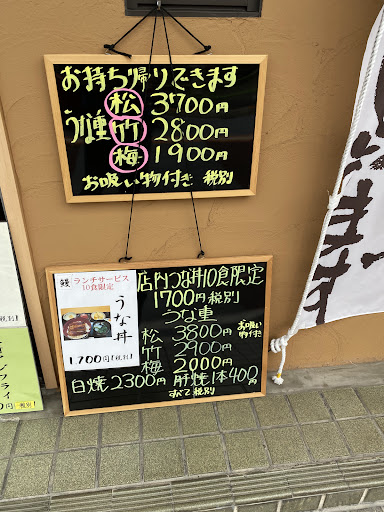 お持ち帰りできます
うな重
松 3700円
竹 2800円
梅 1900円
お吸い物付き 税別
鰻 ランチサービス
10食限定
うな丼
1,700円(税別)
店内うな丼10食限定
1700円税別
うな重
松 3800円
竹 2900円
梅 2000円
お吸い物付き
白焼2300円 肝焼1本400円
すべて税別
フライ